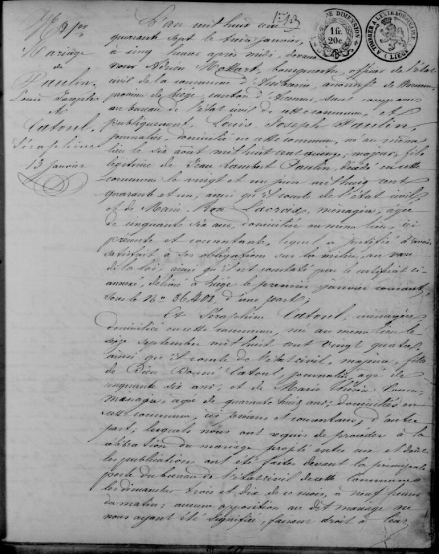 N° 1er
Mariage
de
Paulin
Louis Joseph
et
Catoul
Séraphine
13 janvier
L'an mil huit cent
quarante sept le treize janvier,
à cinq heures après midi, devant
nous Adrien Mottart, bourgmestre, officier de l'état
civil de la commune d', arrondissement de
province de Liège, canton d', sont comparus
au bureau de l'état civil de cette commune, et
publiquement, Louis Joseph Paulin,
journalier, domicilié en cette commune, né au même
lieu le dix août mil huit cent, majeur, fils
légitime de Jean Lambert Paulin, décédé en cette
commune le vingt et un juin mil huit cent
quarante et un, ainsi qu'il conste de l'état civil,
et de Marie Lacroix, ménagère, âgée
de cinquante six ans, domiciliée au même lieu, ici
présente et consentante, lequel a justifié d'avoir
satisfait à ses obligations sur la milice, au vœu
de la loi, ainsi qu'il est constaté par le certificat ci
annexé, délivré à Liège le premier janvier courant
sous le N° 36408, d'une part;
Et Séraphine Catoul, ménagère
domiciliée en cette commune, née au même lieu le
septembre mil huit cent vingt quatre,
ainsi qu'il conste de l'état civil, majeure, fille
de Dieu Donné Catoul, journalier, âgé de
cinquante six ans; et de Marie
ménagère, âgée de quarante huit ans; domiciliés en
cette commune, ici présens et consentans, d'autre
part, lesquels nous ont requis de procéder à la
célébration du mariage projeté entre eux et dont
les publications ont été faites devant la principale
porte du bureau de l'état civil de cette commune
les dimanches trois et dix de ce mois, à neuf heures
du matin; aucune opposition au dit mariage ne
nous ayant été signifiée, faisant droit à leur